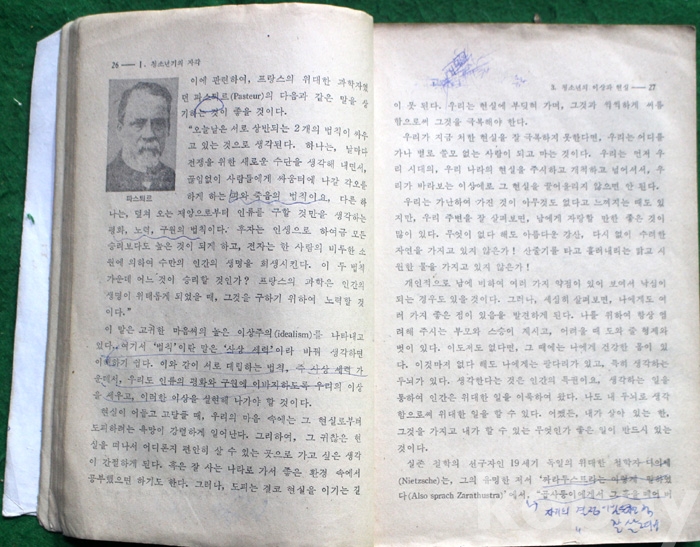 26 — 1. 청소년기의 자각
이에 관련하여, 프랑스의 위대한 과학자였
던 파스퇴르(Pasteur)의 다음과 같은 말을 상
기하는 것이 좋을 것이다.
“오늘날은 서로 상반되는 2개의 법칙이 싸우
고 있는 것으로 생각된다. 하나는, 날마다
전쟁을 위한 새로운 수단을 생각해 내면서,
끊임없이 사람들에게 싸움터에 나갈 각오를
하게 하는 피와 죽음의 법칙이요, 다른 하
파스퇴르
나는, 덮쳐 오는 재앙으로부터 인류를 구할 것만을 생각하는
평화, 노력, 구원의 법칙이다. 후자는 인생으로 하여금 모든
승리보다도 높은 것이 되게 하고, 전자는 한 사람의 비루한 소
원에 의하여 수만의 인간의 생명을 희생시킨다. 이 두 법칙
가운데 어느 것이 승리할 것인가? 프랑스의 과학은 인간의
생명이 위태롭게 되었을 때, 그것을 구하기 위하여 노력할 것
이다.”
이 말은 고귀한 마음씨의 높은 이상주의(idealism)를 나타내고
있다. 여기서 ‘법칙’이란 말은 ‘사상 세력’이라 바꿔 생각하면
이해하기 쉽다. 이와 같이 서로 대립하는 법칙, 즉 사상 세력 가
운데서, 우리도 인류의 평화와 구원에 이바지하도록 우리의 이상
을 세우고, 이러한 이상을 실현해 나가야 할 것이다.
현실이 어둡고 고달플 때, 우리의 마음 속에는 그 현실로부터
도피하려는 욕망이 강렬하게 일어난다. 그리하여, 그 귀찮은 현
실을 떠나서 어디론지 편안히 살 수 있는 곳으로 가고 싶은 생각
이 간절하게 된다. 혹은 잘 사는 나라로 가서 좋은 환경 속에서
공부했으면 하기도 한다. 그러나, 도피는 결코 현실을 이기는 길
3. 청소년의 이상과 현실 — 27
이 못 된다. 우리는 현실에 부딪혀 가며, 그것과 씩씩하게 싸움
함으로써 그것을 극복해야 한다.
우리가 지금 처한 현실을 잘 극복하지 못한다면, 우리는 어디를
가나 별로 쓸모 없는 사람이 되고 마는 것이다. 우리는 먼저 우
리 시대의, 우리 나라의 현실을 주시하고 개척하고 넘어서서, 우
리가 바라보는 이상에로 그 현실을 끌어올리지 않으면 안 된다.
우리는 가난하여 가진 것이 아무것도 없다고 느껴지는 때도 있
지만, 우리 주변을 잘 살펴보면, 남에게 자랑할 만한 좋은 것이
많이 있다. 무엇이 없다 해도 아름다운 강산, 다시 없이 수려한
자연을 가지고 있지 않은가! 산줄기를 타고 흘러내리는 맑고 시
원한 물을 가지고 있지 않은가!
개인적으로 남에 비하여 여러 가지 약점이 있어 보여서 낙심이
되는 경우도 있을 것이다. 그러나, 세심히 살펴보면, 나에게도 여
러 가지 좋은 점이 있음을 발견하게 된다. 나를 위하여 항상 염
려해 주시는 부모와 스승이 계시고, 어려울 때 도와 줄 형제와
벗이 있다. 이도저도 없다면, 그 때에는 나에게 건강한 몸이 있
다. 이것마저 없다 해도 나에게는 팔다리가 있고, 특히 생각하는
두뇌가 있다. 생각한다는 것은 인간의 특권이요, 생각하는 일을
통하여 인간은 위대한 일을 이룩하여 왔다. 나도 내 두뇌로 생각
함으로써 위대한 일을 할 수 있다. 어쨌든, 내가 살아 있는 한,
그것을 가지고 내가 할 수 있는 무엇인가 좋은 일이 반드시 있는
것이다.
실존 철학의 선구자인 19세기 독일의 위대한 철학자 니이체
(Nietzsche)는, 그의 유명한 저서 ‘짜라투스트라는 이렇게 말하였
다(Also sprach Zarathustra)’에서,